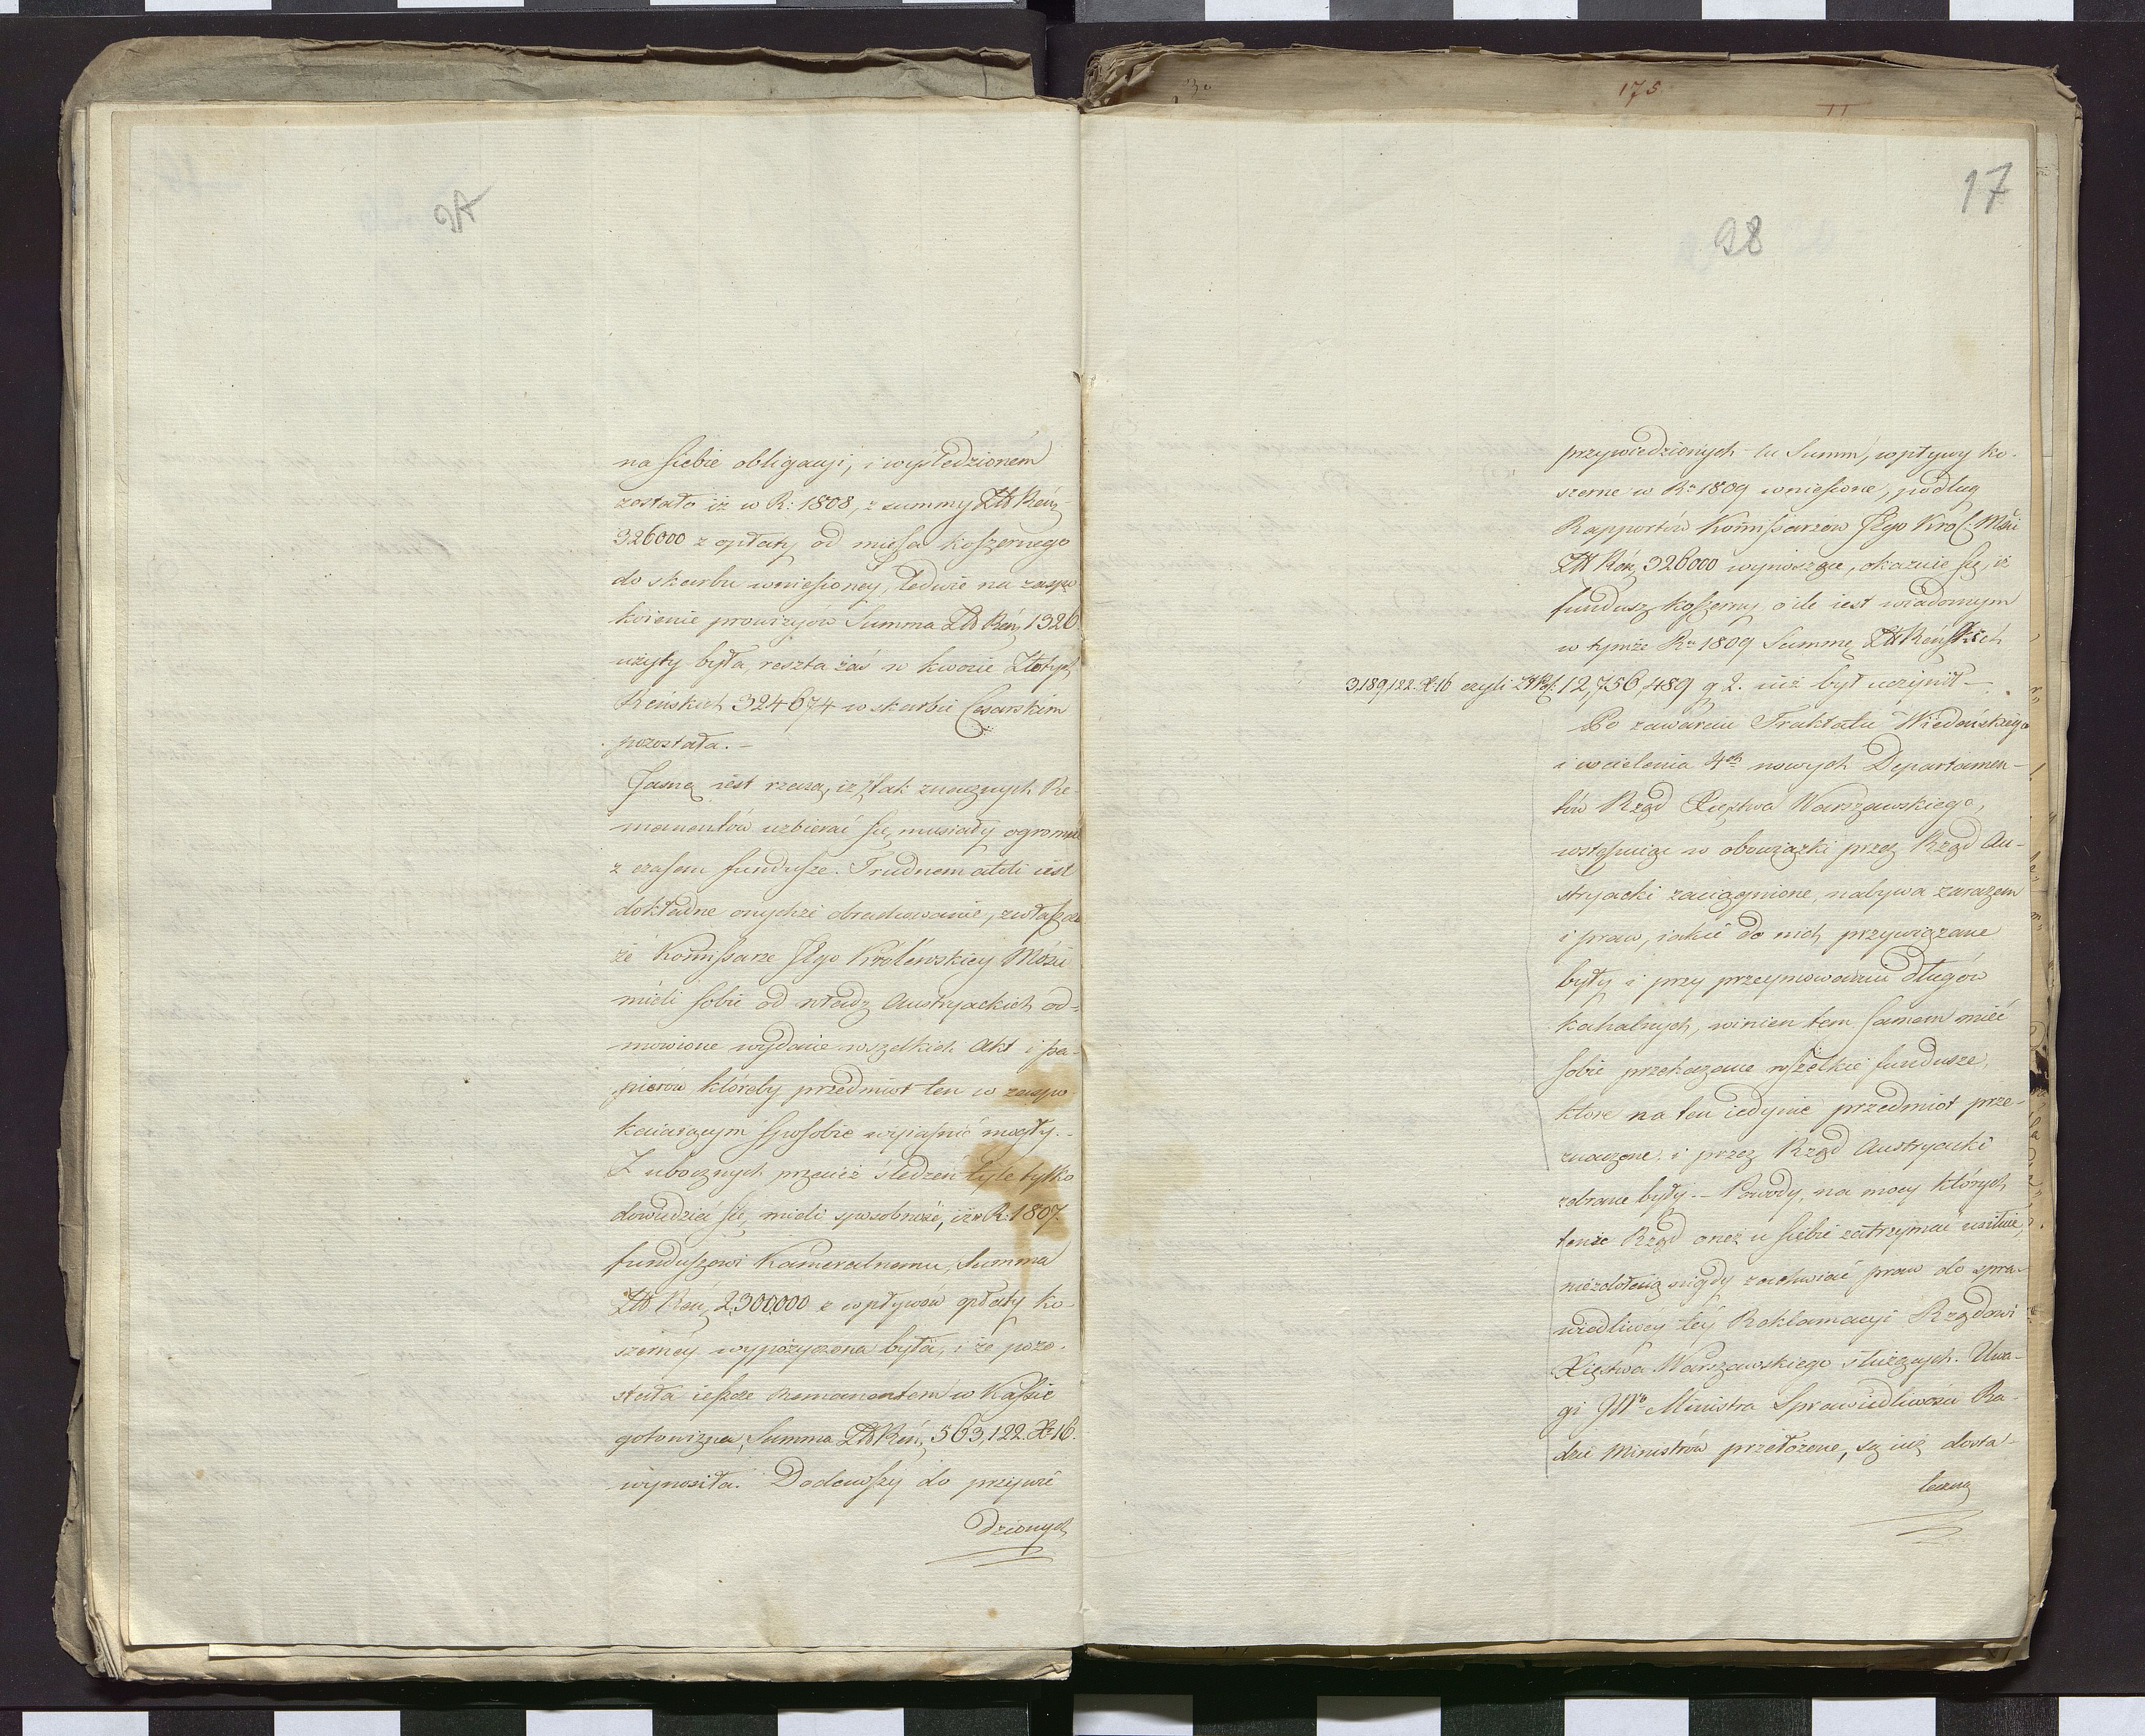 na siebie obligacyi, i wyśledzioném
zostało iż w R: 1808, z summy ZłłReńs
326000 z opłaty od mięsa koszernego
do skarbu wniesioney, ledwie na zaspo
koienie prowizyów Summa Złł Reńs 1326
użyty była, reszta zaś w kwocie Złotych
Reńskich 324674 w skarbie Cesarskim
pozostała. –
Jasną iest rzeczą, iż z tak znacznych Re-
manentów uzbierać się musiały ogromne
z czasem fundusze. Trudnem atoli iest
dokładne onychże obrachowanie, zwłaszcza
że Kommissarze JEgo Królewskiey Mości
mieli sobie od władz Austryackich od=
mówione wydanie wszelkich Akt i pa-
pierów któreby przedmiot ten w zaspo
kaiaiącym sposobie wyiaśnić mogły. –
Z ubocznych przecież śledzeń tyle tylko
dowiedzieć się mieli sposobność, iż w R: 1807.
funduszowi Kameralnemu, Summa
Złł. Reńs 2,300,000 z wpływów opłaty ko-
szerney wypożyczona była, i że pozo-
stała ieszcze Remanentem w Kassie
gotowizna, Summa Złł Reńs 563,122. Xr 16.
wynosiła. Dodawszy do przywie
dzionych
175
17
28
przywiedzionych tu Summ, wpływy ko-
szerne w Rr 1809 wniesione, podług
Rapportów Kommissarzów JEgo Król: Mści
Złł Reńs 326000 wynoszące, okazuie się, iż
fundusz koszerny o ile iest wiadomym
w tymże Rr 1809 Summę Złł Reńskich
3,189,122. Xr 16 czyli Zł Pol: 12,756,489 g 2. iuż był uczynił –
Po zawarciu Traktatu Wiedeńskiego
i wcielenia 4ch nowych Departamen-
tów Rząd Xięztwa Warszawskiego,
wstępuiąc w obowiązki przez Rząd Au-
stryacki zaciągnione, nabywa zarazem
i praw, iakie do nich przywiązane
były i przy przeymowaniu długów
kahalnych, winien tem samem mieć
sobie przekazane wszelkie fundusze,
które na ten iedynie przedmiot prze-
znaczone i przez Rząd Austryacki
zebrane były. – Powody, na mocy których
tenże Rząd onez u siebie zatrzymać usiłuie,
niezdołaią nigdy zachwiać praw do spra-
wiedliwey téy Reklamacyi Rządowi
Xięstwa Warszawskiego służących. Uwa-
gi JWo Ministra Sprawiedliwości Ra-
dzie Ministrów przełożone, są iuż dosta-
teczną